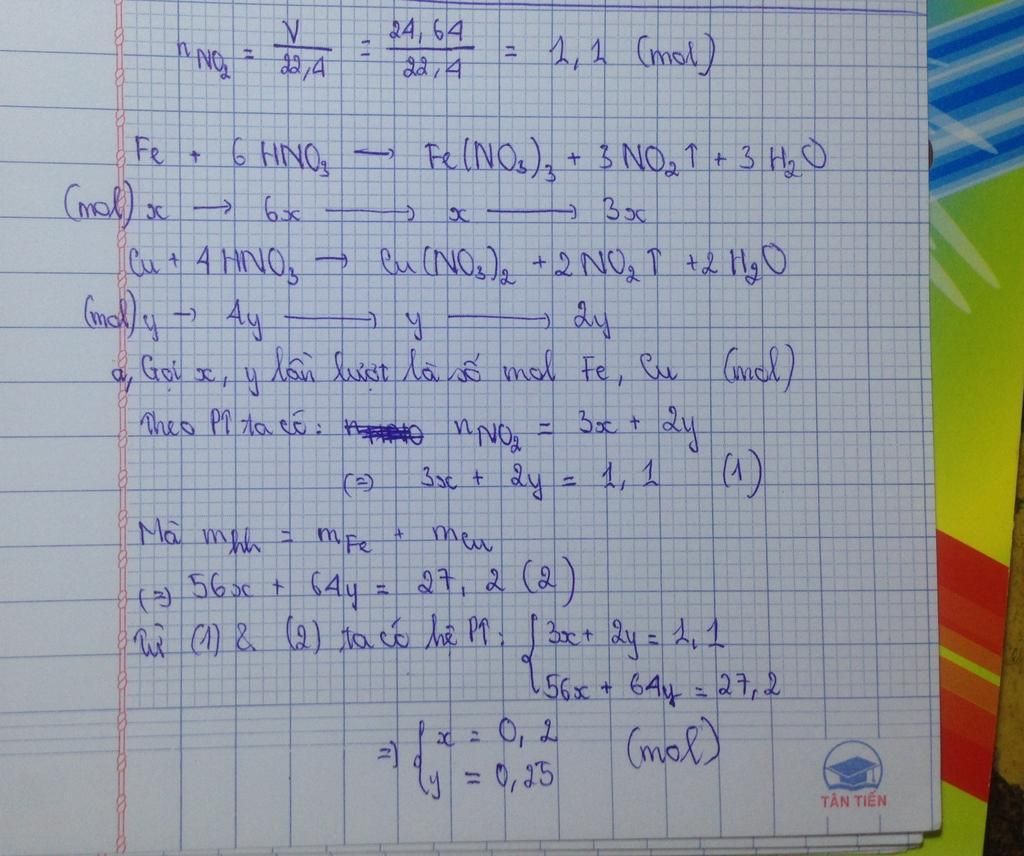 nNO₂ = V/22,4 = 24,64/22,4 = 1,1 (mol)
Fe + 6 HNO₃ → Fe(NO₃)₃ + 3 NO₂↑ + 3 H₂O
(mol) x → 6x → x → 3x
Cu + 4 HNO₃ → Cu(NO₃)₂ + 2 NO₂↑ + 2 H₂O
(mol) y → 4y → y → 2y
a, Gọi x, y lần lượt là số mol Fe, Cu (mol)
Theo PT ta có: nNO₂ = 3x + 2y
(=) 3x + 2y = 1,1 (1)
Mà mhh = mFe + mCu
(=) 56x + 64y = 27,2 (2)
Từ (1) & (2) ta có hệ PT: { 3x + 2y = 1,1
56x + 64y = 27,2
=) { x = 0,2 (mol)
y = 0,25
TÂN TIẾN